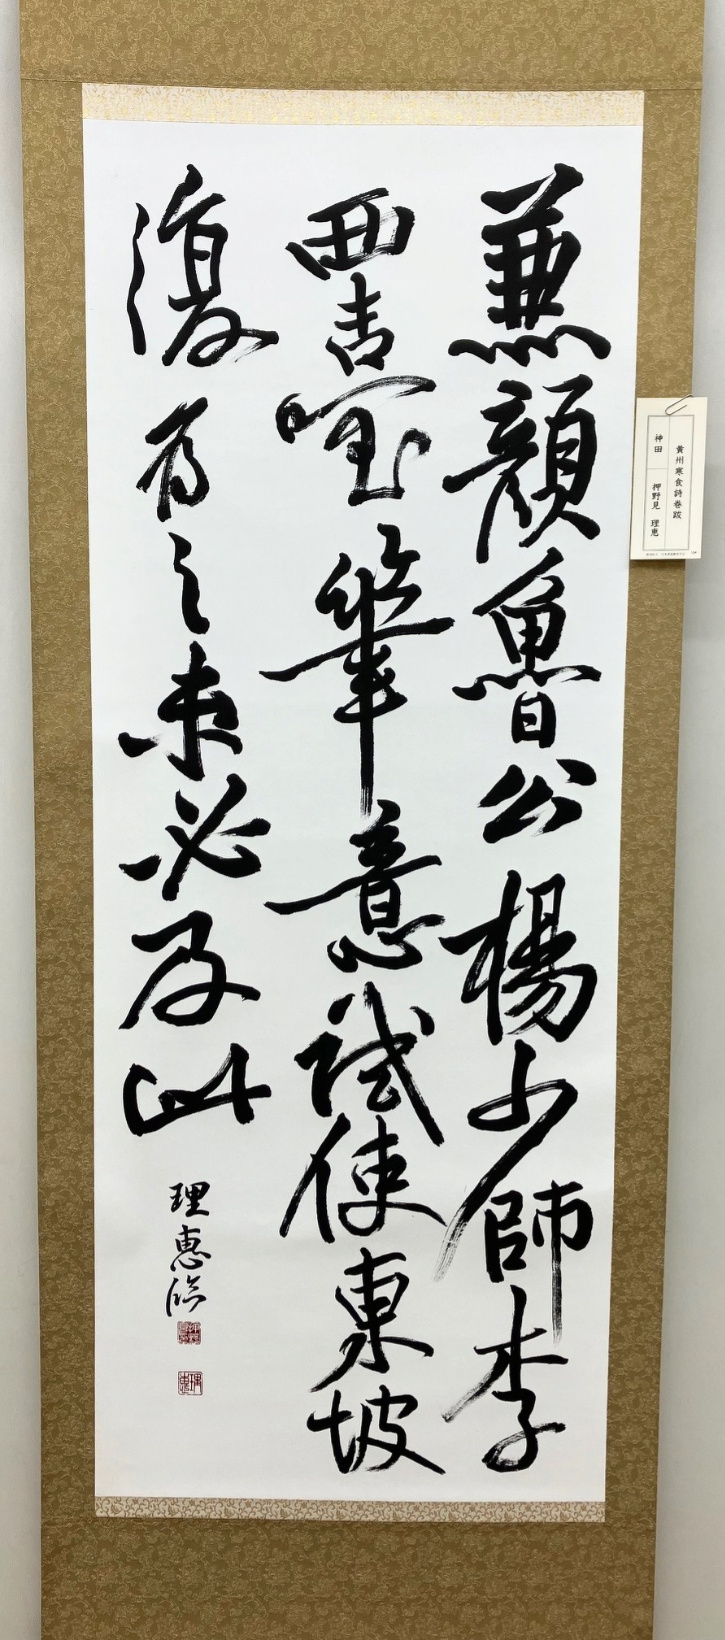 兼顔魯公楊少師李
西臺筆意試使東坡
復為之未必及此
理恵臨
黄州寒食詩巻跋
神田 押野見 理恵